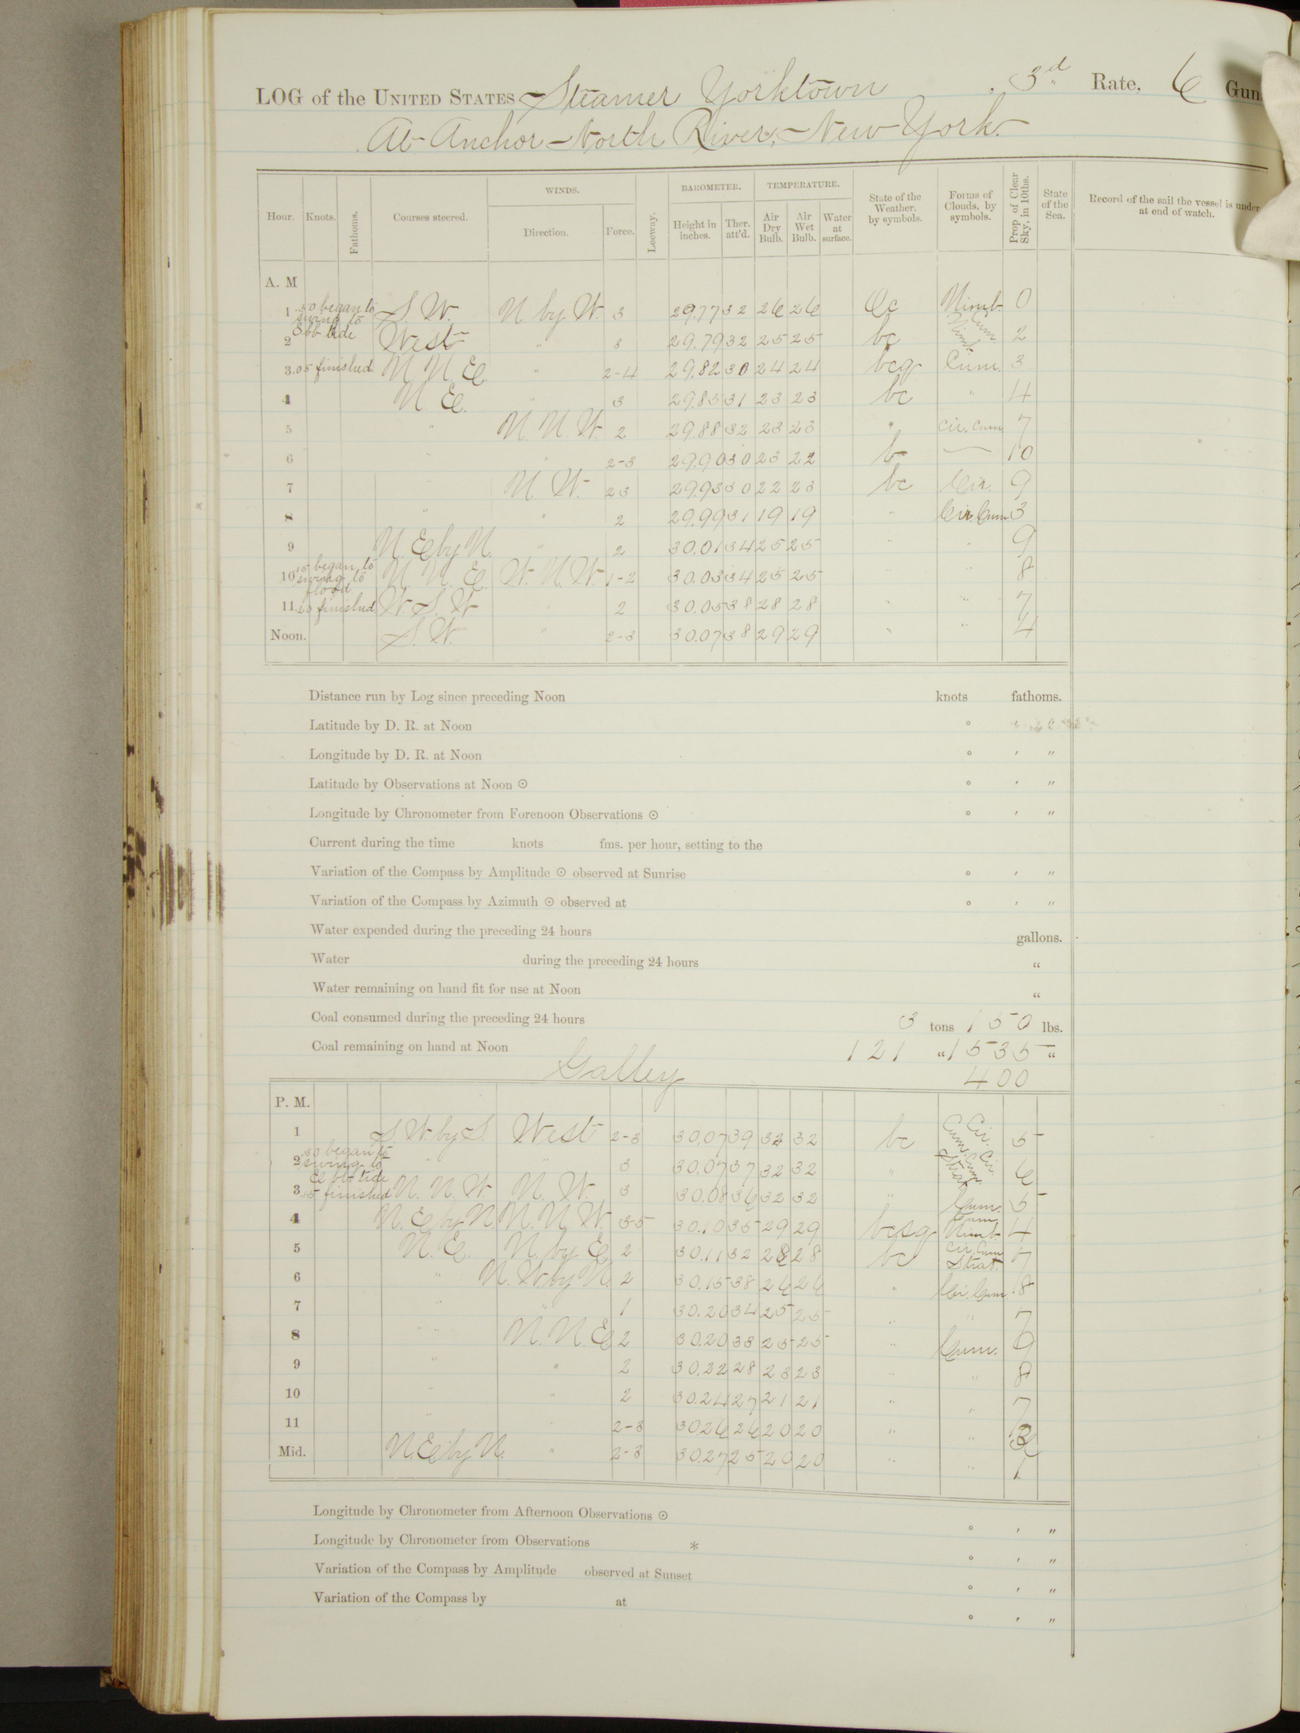 LOG of the UNITED STATES Steamer Yorktown, 3rd Rate, 6 Gun
At Anchor - North River, - New York.
Hour. Knots. Fathoms. Courses steered. WINDS. Direction. Force. Leeway. BAROMETER. Height in inches. Ther. att'd. TEMPERATURE. Air Dry Bulb. Air Wet Bulb. Water at surface. State of the Weather, by symbols. Forms of Clouds, by symbols. Prop. of Clear Sky, in 10ths. State of the Sea. Record of the sail the vessel is under at end of watch.
A. M
1 30 began to swing to S. W. N by W 3 29.77 32 26 26 Oc Nimb 0
2 Ebb tide West " 3 29.79 32 25 25 bc Cum Nimb 2
3 05 finished N N E " 2-4 29.82 30 24 24 bcq Cum. 3
4 N E. " 3 29.85 31 23 23 bc " 4
5 " N N W 2 29.88 32 23 23 " cir. cum 7
6 " " 2-3 29.90 30 23 22 b — 10
7 " N. W. 23 29.93 30 22 23 bc Cir. 9
8 " " 2 29.99 31 19 19 " Cir. Cum 3
9 N E by N. " 2 30.01 34 25 25 " " 9
10 15 began to swing to flood N. N. E W. N. W 1-2 30.03 34 25 25 " " 8
11 20 finished W S. W " 2 30.05 38 28 28 " " 7
Noon. S. W. " 2-3 30.07 38 29 29 " " 4
Distance run by Log since preceding Noon knots fathoms.
Latitude by D. R. at Noon ° ' "
Longitude by D. R. at Noon ° ' "
Latitude by Observations at Noon ⊙ ° ' "
Longitude by Chronometer from Forenoon Observations ⊙ ° ' "
Current during the time knots fms. per hour, setting to the
Variation of the Compass by Amplitude ⊙ observed at Sunrise ° ' "
Variation of the Compass by Azimuth ⊙ observed at ° ' "
Water expended during the preceding 24 hours gallons.
Water during the preceding 24 hours "
Water remaining on hand fit for use at Noon "
Coal consumed during the preceding 24 hours 3 tons 150 lbs.
Coal remaining on hand at Noon 121 " 1535 "
Galley 400
P. M.
1 S. W. by S. West 2-3 30.07 39 32 32 bc Cir. Cum. 5
2 30 began to swing to Ebb tide " " 3 30.07 37 32 32 " Cir Cum Strat 6
3 15 finished N. N. W N. W. 3 30.08 36 32 32 " Cum. 5
4 N. E by N N. N. W. 3-5 30.10 35 29 29 bcsq Cum Nimb 4
5 N. E. N. by E 2 30.11 32 28 28 bc Cir. Cum Strat. 7
6 " N. W. by N 2 30.15 38 26 26 " Cir. Cum 8
7 " " 1 30.20 34 25 25 " " 7
8 " N. N. E 2 30.20 33 25 25 " Cum. 9
9 " " 2 30.22 28 23 23 " " 8
10 " " 2 30.24 27 21 21 " " 7
11 " " 2-3 30.26 26 20 20 " "
Mid. N. E by N. " 2-3 30.27 25 20 20 " " 1
Longitude by Chronometer from Afternoon Observations ⊙ ° ' "
Longitude by Chronometer from Observations * ° ' "
Variation of the Compass by Amplitude observed at Sunset ° ' "
Variation of the Compass by at ° ' "